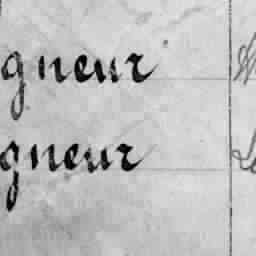 gneur
gneur